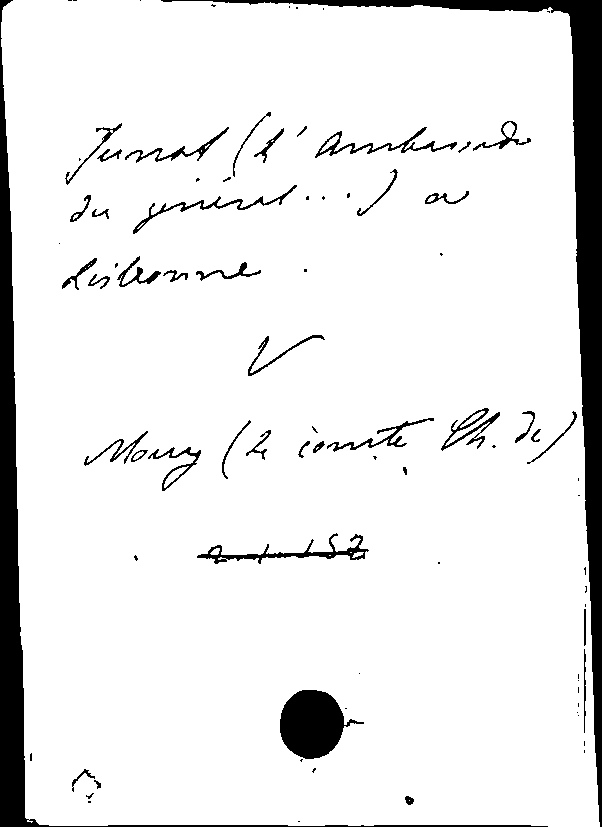 Junot (L'Ambassade
du général...) a
Lisbonne.
V
Mouy (Le comte Ch. de)
2.1.152